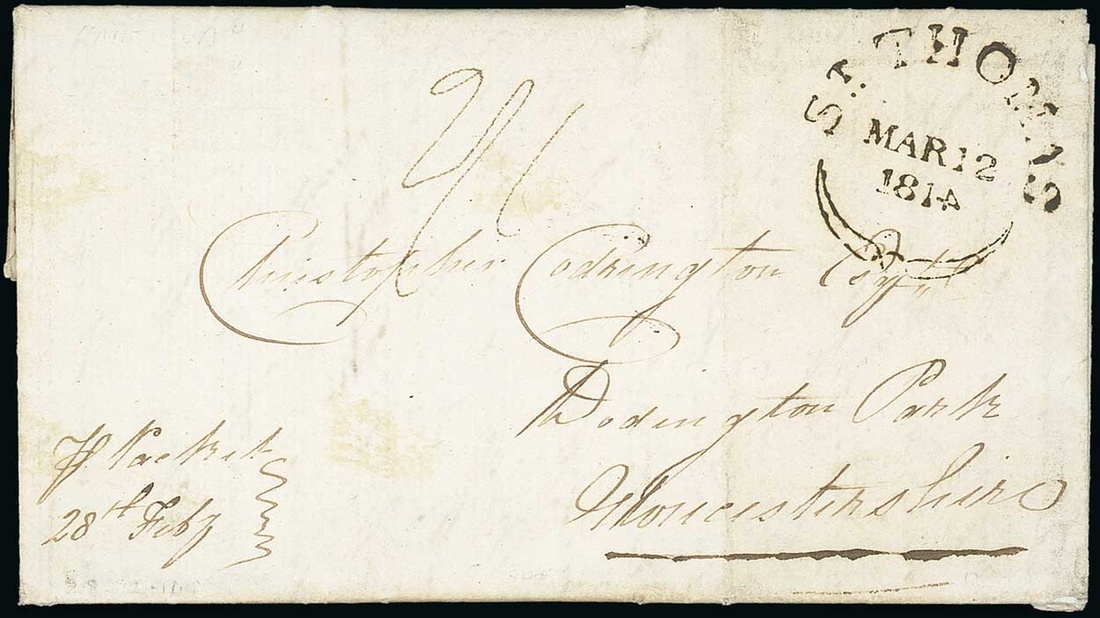 ST. THOMAS
MAR 12
1814
2/1
Christopher Codrington Esqr
Dodington Park
Gloucestershire
Packet
28th Feby